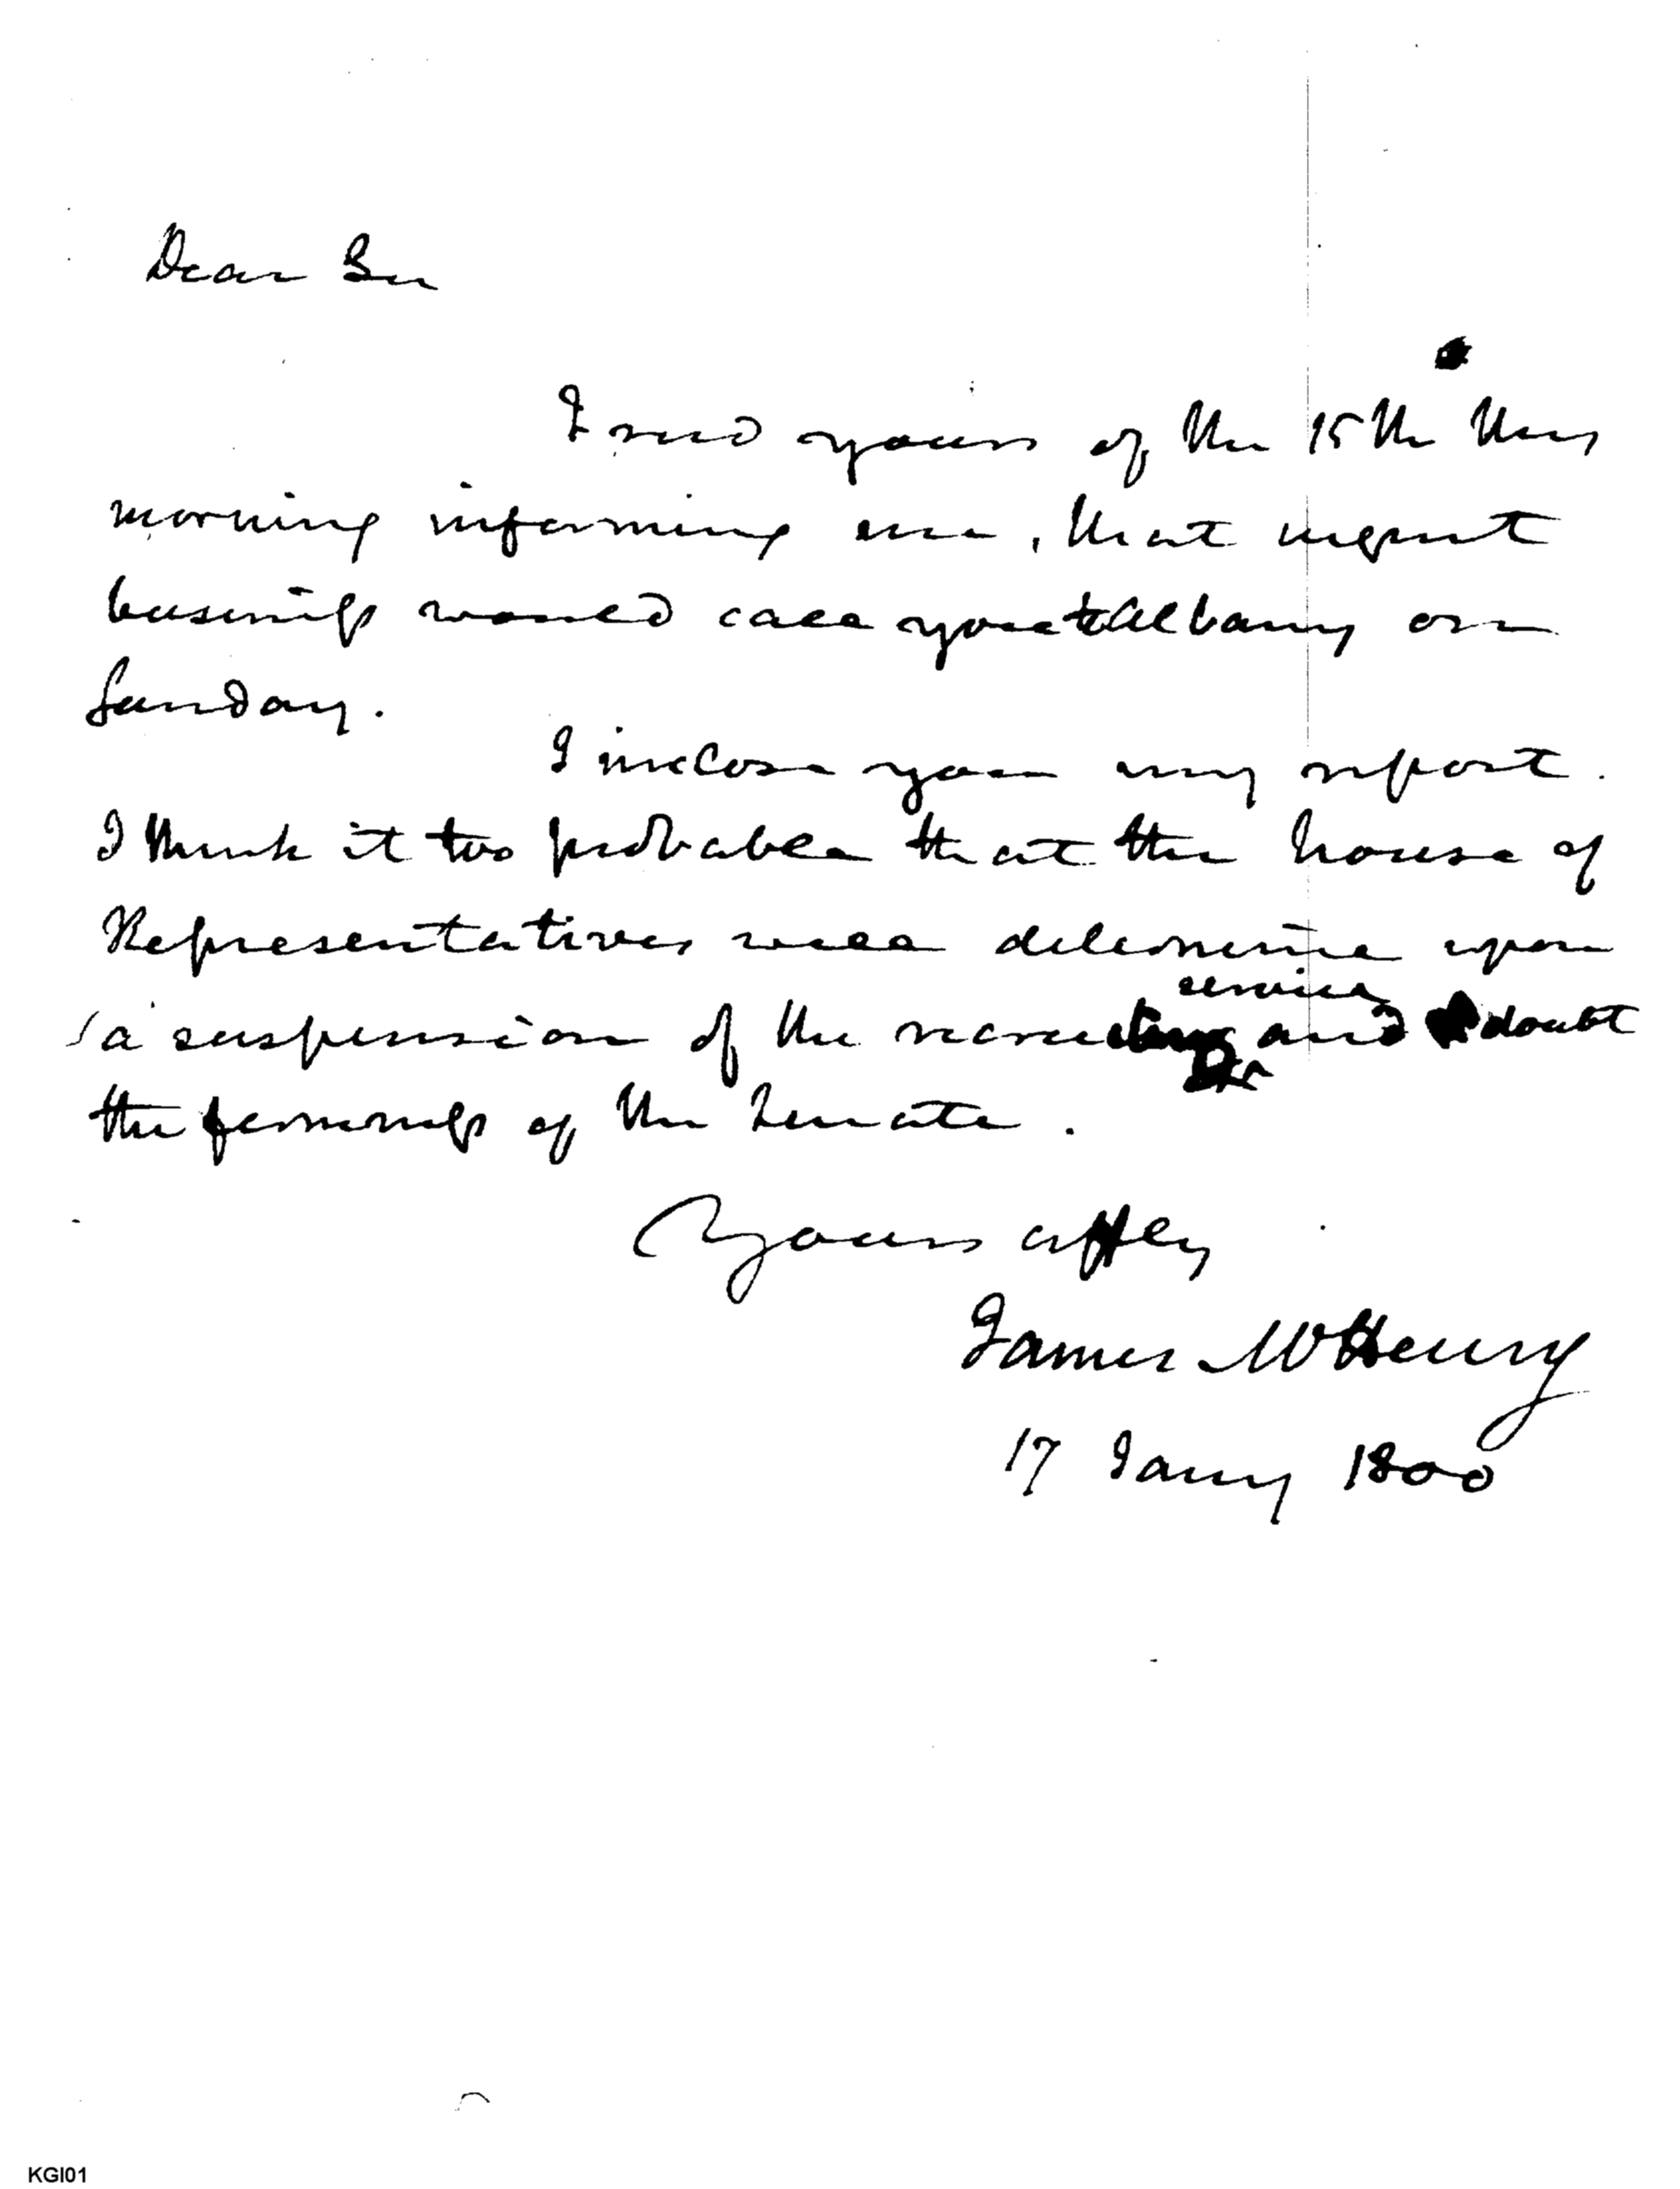 Dear Sir
I recd yours of the 15th this
morning informing me, that urgent
business would call you to Albany on
Sunday.
I inclose you my report.
I think it too probable that the house of
Representatives will determine upon
service
a suspension of the recruiting and doubt
the firmness of the Senate.
Yours affly
James McHenry
17 Jany 1800
KGI01